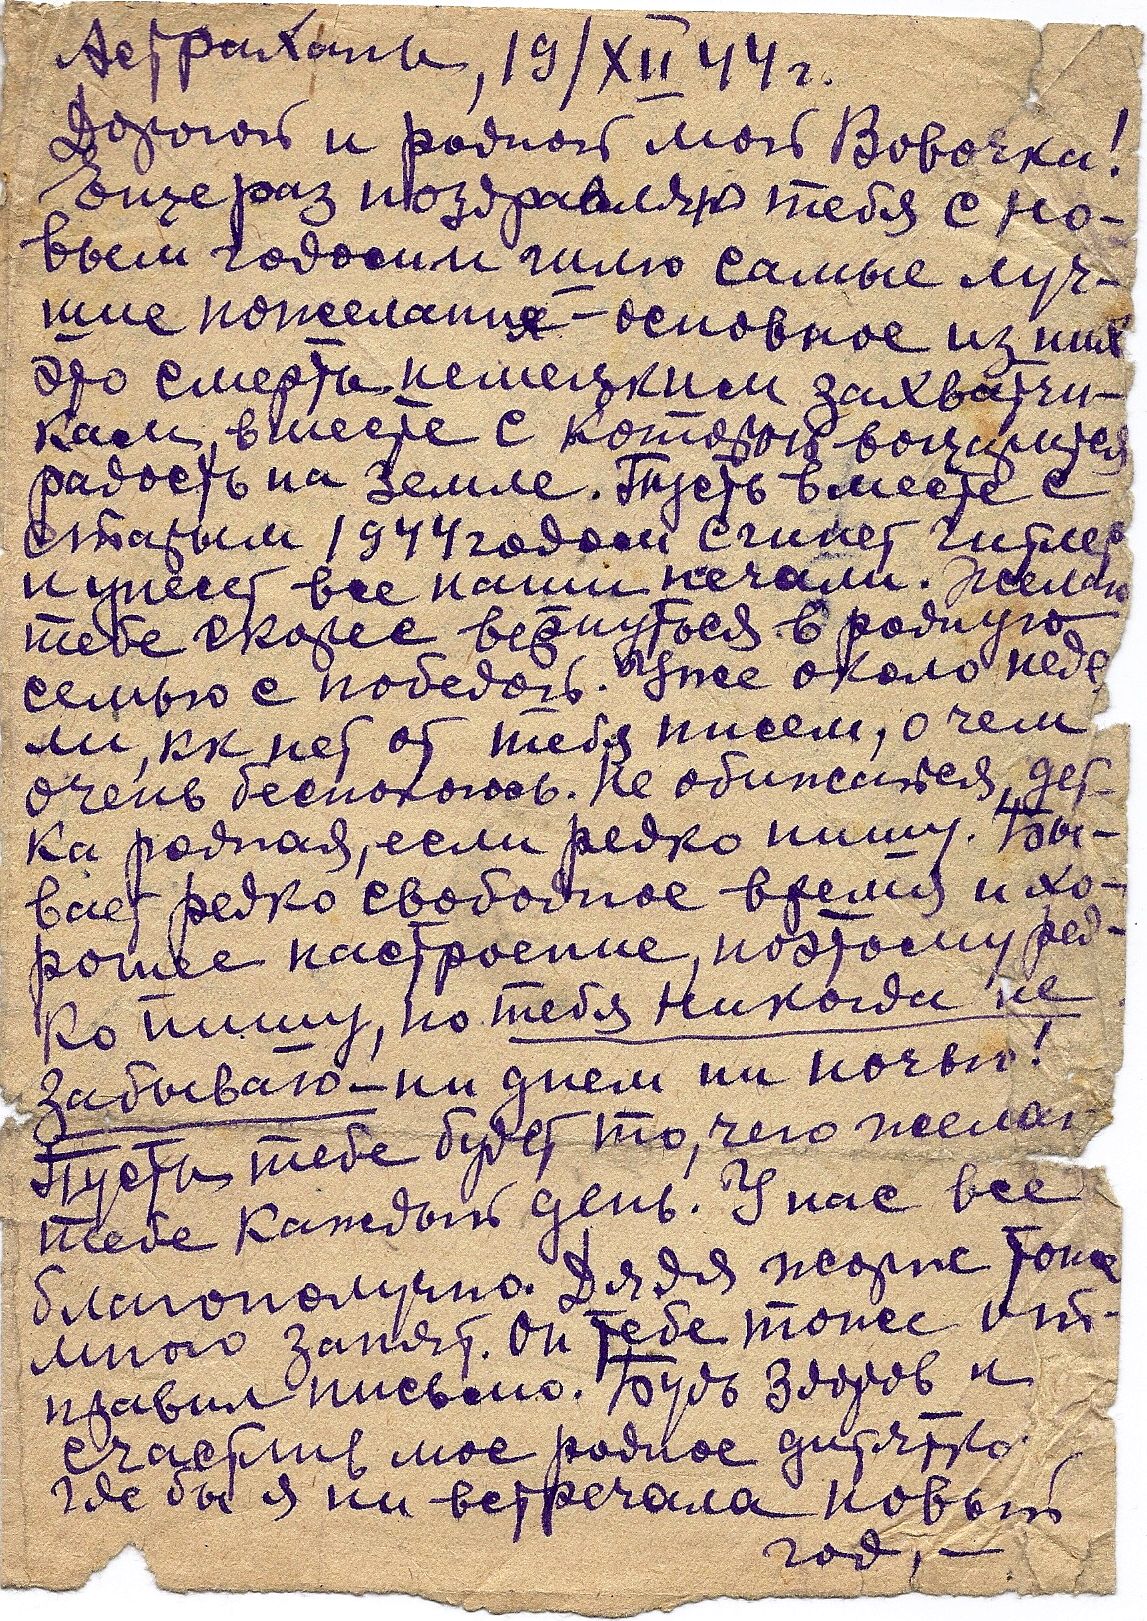 Астрахань, 19/XII 44 г.
Дорогой и родной мой Вовочка!
Еще раз поздравляю тебя с но-
вым годом и шлю самые луч-
шие пожелания – основное из них
это смерть немецким захватчи-
кам, вместе с которой воцарится
радость на земле. Пусть вместе с
старым 1944 годом сгинет Гитлер
и унесет все наши печали. Желаю
тебе скорее вернуться в родную
семью с победой. Уже около неде-
ли, кк нет от тебя писем, о чем
очень беспокоюсь. Не обижайся, дет-
ка родная, если редко пишу. Бы-
вает редко свободное время и хо-
рошее настроение, поэтому ред-
ко пишу, но тебя никогда не
забываю – ни днем ни ночью!
Пусть тебе будет то, чего желаю
тебе каждый день. У нас все
благополучно. Дядя Жорж тоже
много занят. Он тебе тоже от-
правил письмо. Будь здоров и
счастлив мое родное дитятко.
Где бы я ни встречала новый
год, –